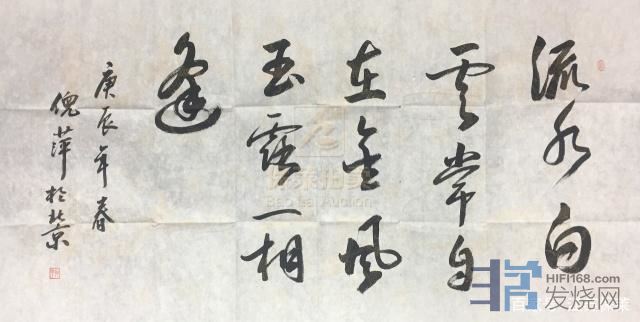 流水白
雲常自
在金風
玉露一相
逢
庚辰年春
倪萍於北京
Bao Lai Auction
HIFI168.com
发烧网